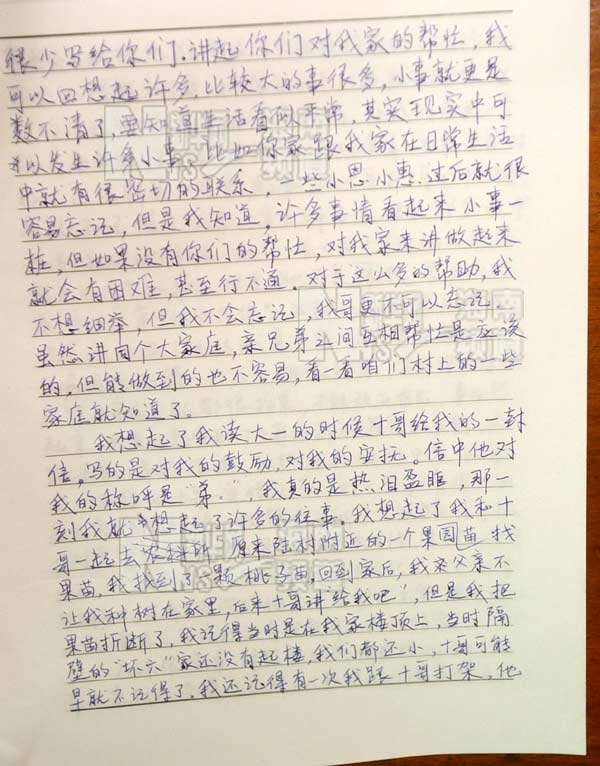 很少写给你们.讲起你们对我家的帮忙,我
可以回想起许多,比较大的事很多,小事就更是
数不清了,要知道生活看似平常,其实现实中可
以发生许多小事,比如你家跟我家在日常生活
中就有很密切的联系,一些小恩小惠.过后就很
容易忘记,但是我知道,许多事情看起来小事一
桩,但如果没有你们的帮忙,对我家来讲做起来
就会有困难,甚至行不通.对于这么多的帮助,我
不想细举,但我不会忘记,我哥更不可以忘记
虽然讲同个大家庭,亲兄弟之间互相帮忙是应该
的,但能做到的也不容易,看一看咱们村上的一些
家庭就知道了。
我想起了我读大一的时候十哥给我的一封
信。写的是对我的鼓励,对我的安抚。信中他对
我的称呼是“弟:”,我真的是热泪盈眶,那一
刻我就想起了许多的往事。我想起了我和十
哥一起去农科所,原来陆村附近的一个果园苗找
果苗,我找到了一颗桃子苗,回到家后,我父亲不
让我种树在家里,后来十哥讲“给我吧”,但是我把
果苗折断了,我记得当时是在我家楼顶上,当时隔
壁的“坏六”家还没有起楼,我们都还小,十哥可能
早就不记得了.我还记得有一次我跟十哥打架,他